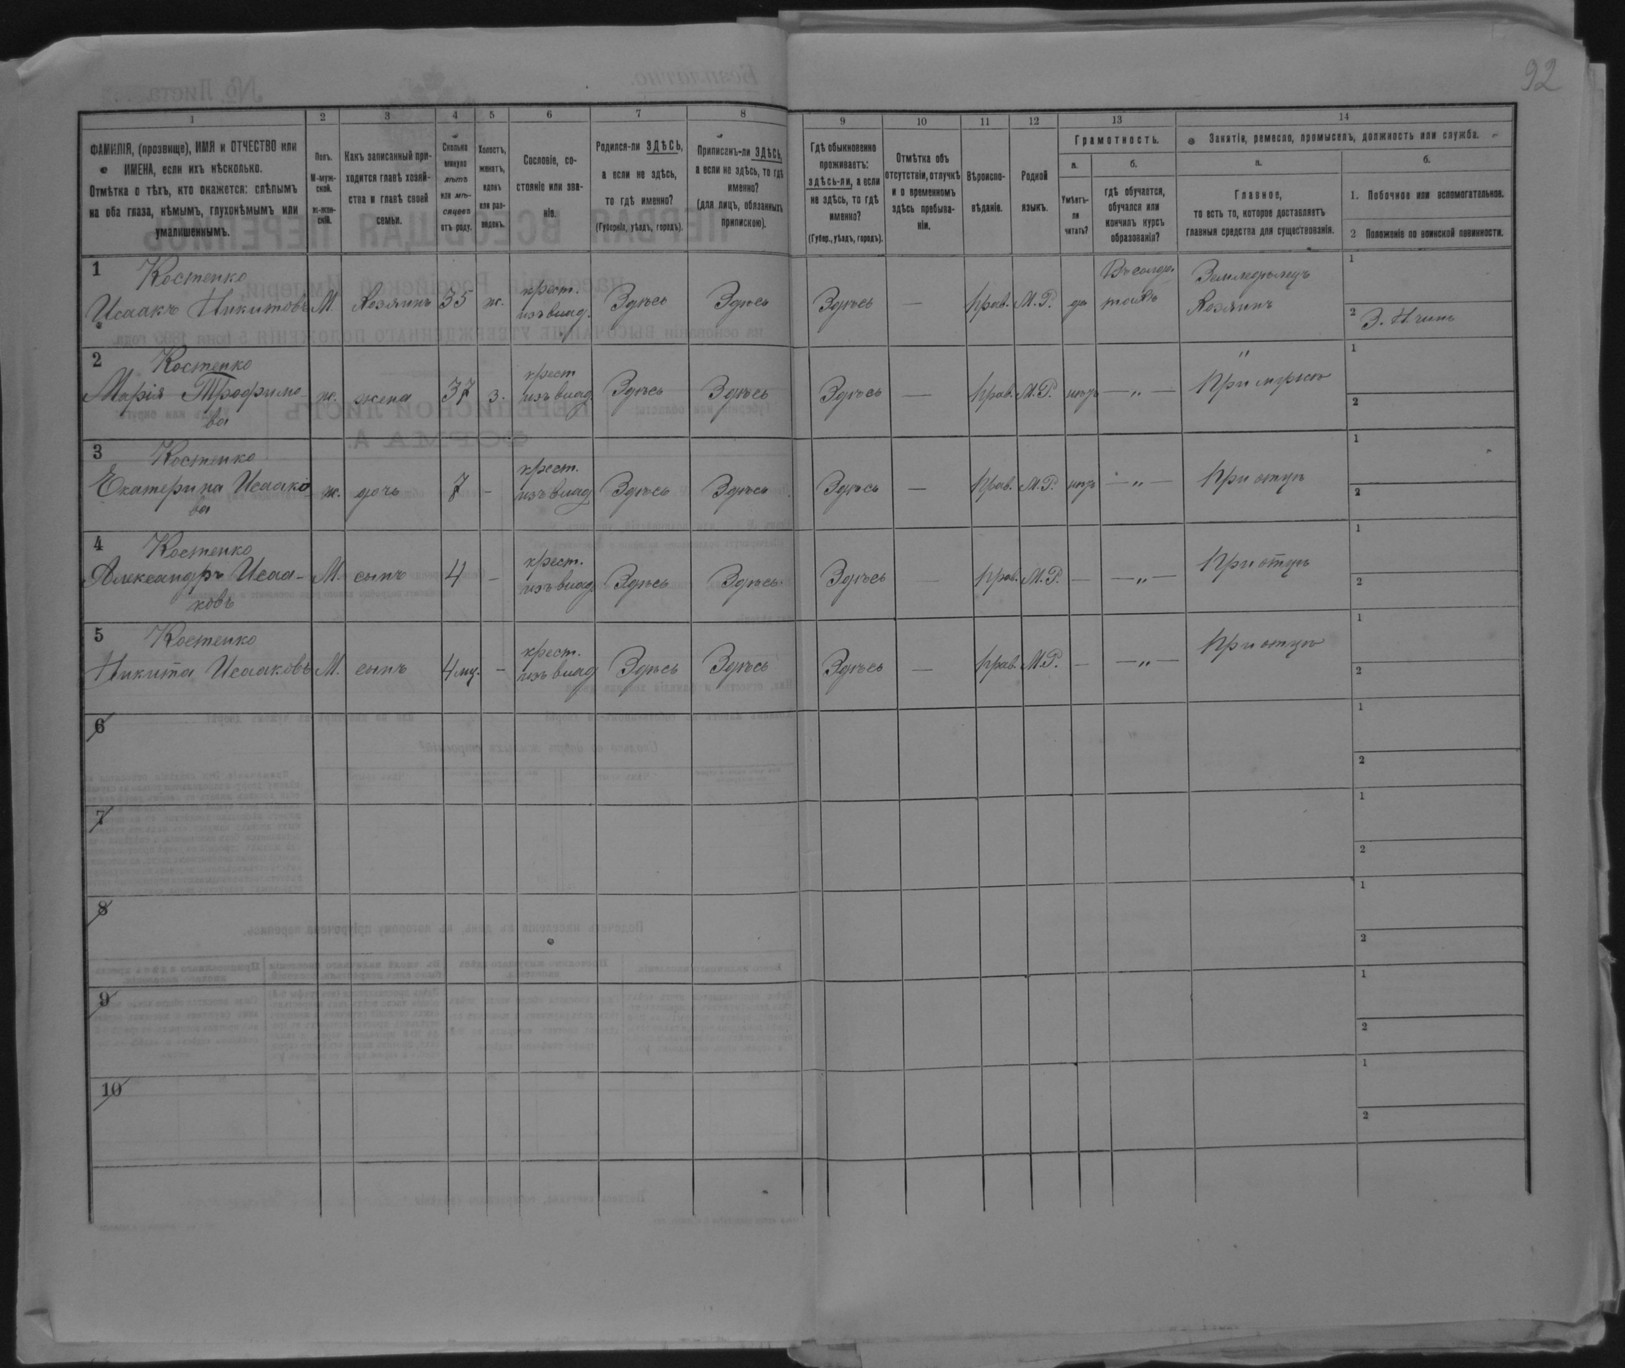 92
1 2 3 4 5 6 7 8 9 10 11 12 13 14
ФАМИЛІЯ, (прозвище), ИМЯ и ОТЧЕСТВО или
ИМЕНА, если ихъ нѣсколько.
Отмѣтка о тѣхъ, кто окажется: слѣпымъ
на оба глаза, нѣмымъ, глухонѣмымъ или
умалишеннымъ.
Полъ.
М-муж-
ской.
ж-жен-
скій.
Какъ записанный при-
ходится главѣ хозяй-
ства и главѣ своей
семьи.
Сколько
минуло
лѣтъ
или мѣ-
сяцевъ
отъ роду.
Холостъ,
женатъ,
вдовъ
или раз-
веденъ.
Сословіе, со-
стояніе или зва-
ніе.
Родился-ли ЗДѢСЬ,
а если не здѣсь,
то гдѣ именно?
(Губернія, уѣздъ, городъ).
Приписанъ-ли ЗДѢСЬ,
а если не здѣсь, то гдѣ
именно?
(для лицъ, обязанныхъ
припискою).
Гдѣ обыкновенно
проживаетъ:
здѣсь-ли, а если
не здѣсь, то гдѣ
именно?
(Губер., уѣздъ, городъ).
Отмѣтка объ
отсутствіи, отлучкѣ
и о временномъ
здѣсь пребыва-
ніи.
Вѣроиспо-
вѣданіе.
Родной
языкъ.
Грамотность.
а.
Умѣетъ-
ли
читать?
б.
гдѣ обучается,
обучался или
кончилъ курсъ
образованія?
Занятіе, ремесло, промыселъ, должность или служба.
а.
Главное,
то есть то, которое доставляетъ
главныя средства для существованія.
б.
1. Побочное или вспомогательное.
2 Положеніе по воинской повинности.
1 Костенко
Исаакъ Никитовъ М Хозяинъ 35 ж. крест. изъ влад. Здѣсь Здѣсь Здѣсь — Прав. М.Р. да Земледѣлецъ
Хозяинъ
1
2
2 Костенко
Марія Трофимо
ва ж. жена 37 з. крест изъ влад. Здѣсь Здѣсь Здѣсь — Прав. М.Р. нѣтъ — „ — „
При мужѣ
1
2
3 Костенко
Екатерина Исаако
ва ж. дочь 7 — крест. изъ влад Здѣсь Здѣсь Здѣсь — Прав. М.Р. нѣтъ — „ — При отцѣ
1
2
4 Костенко
Александръ Исаа-
ковъ М. сынъ 4 — крест. изъ влад. Здѣсь Здѣсь Здѣсь — Прав. М.Р. — — „ — При отцѣ
1
2
5 Костенко
Никита Исааковъ М. сынъ 4 мц. — крест. изъ влад Здѣсь Здѣсь Здѣсь — Прав. М.Р. — — „ — При отцѣ
1
2
6
1
2
7
1
2
8
1
2
9
1
2
10
1
2